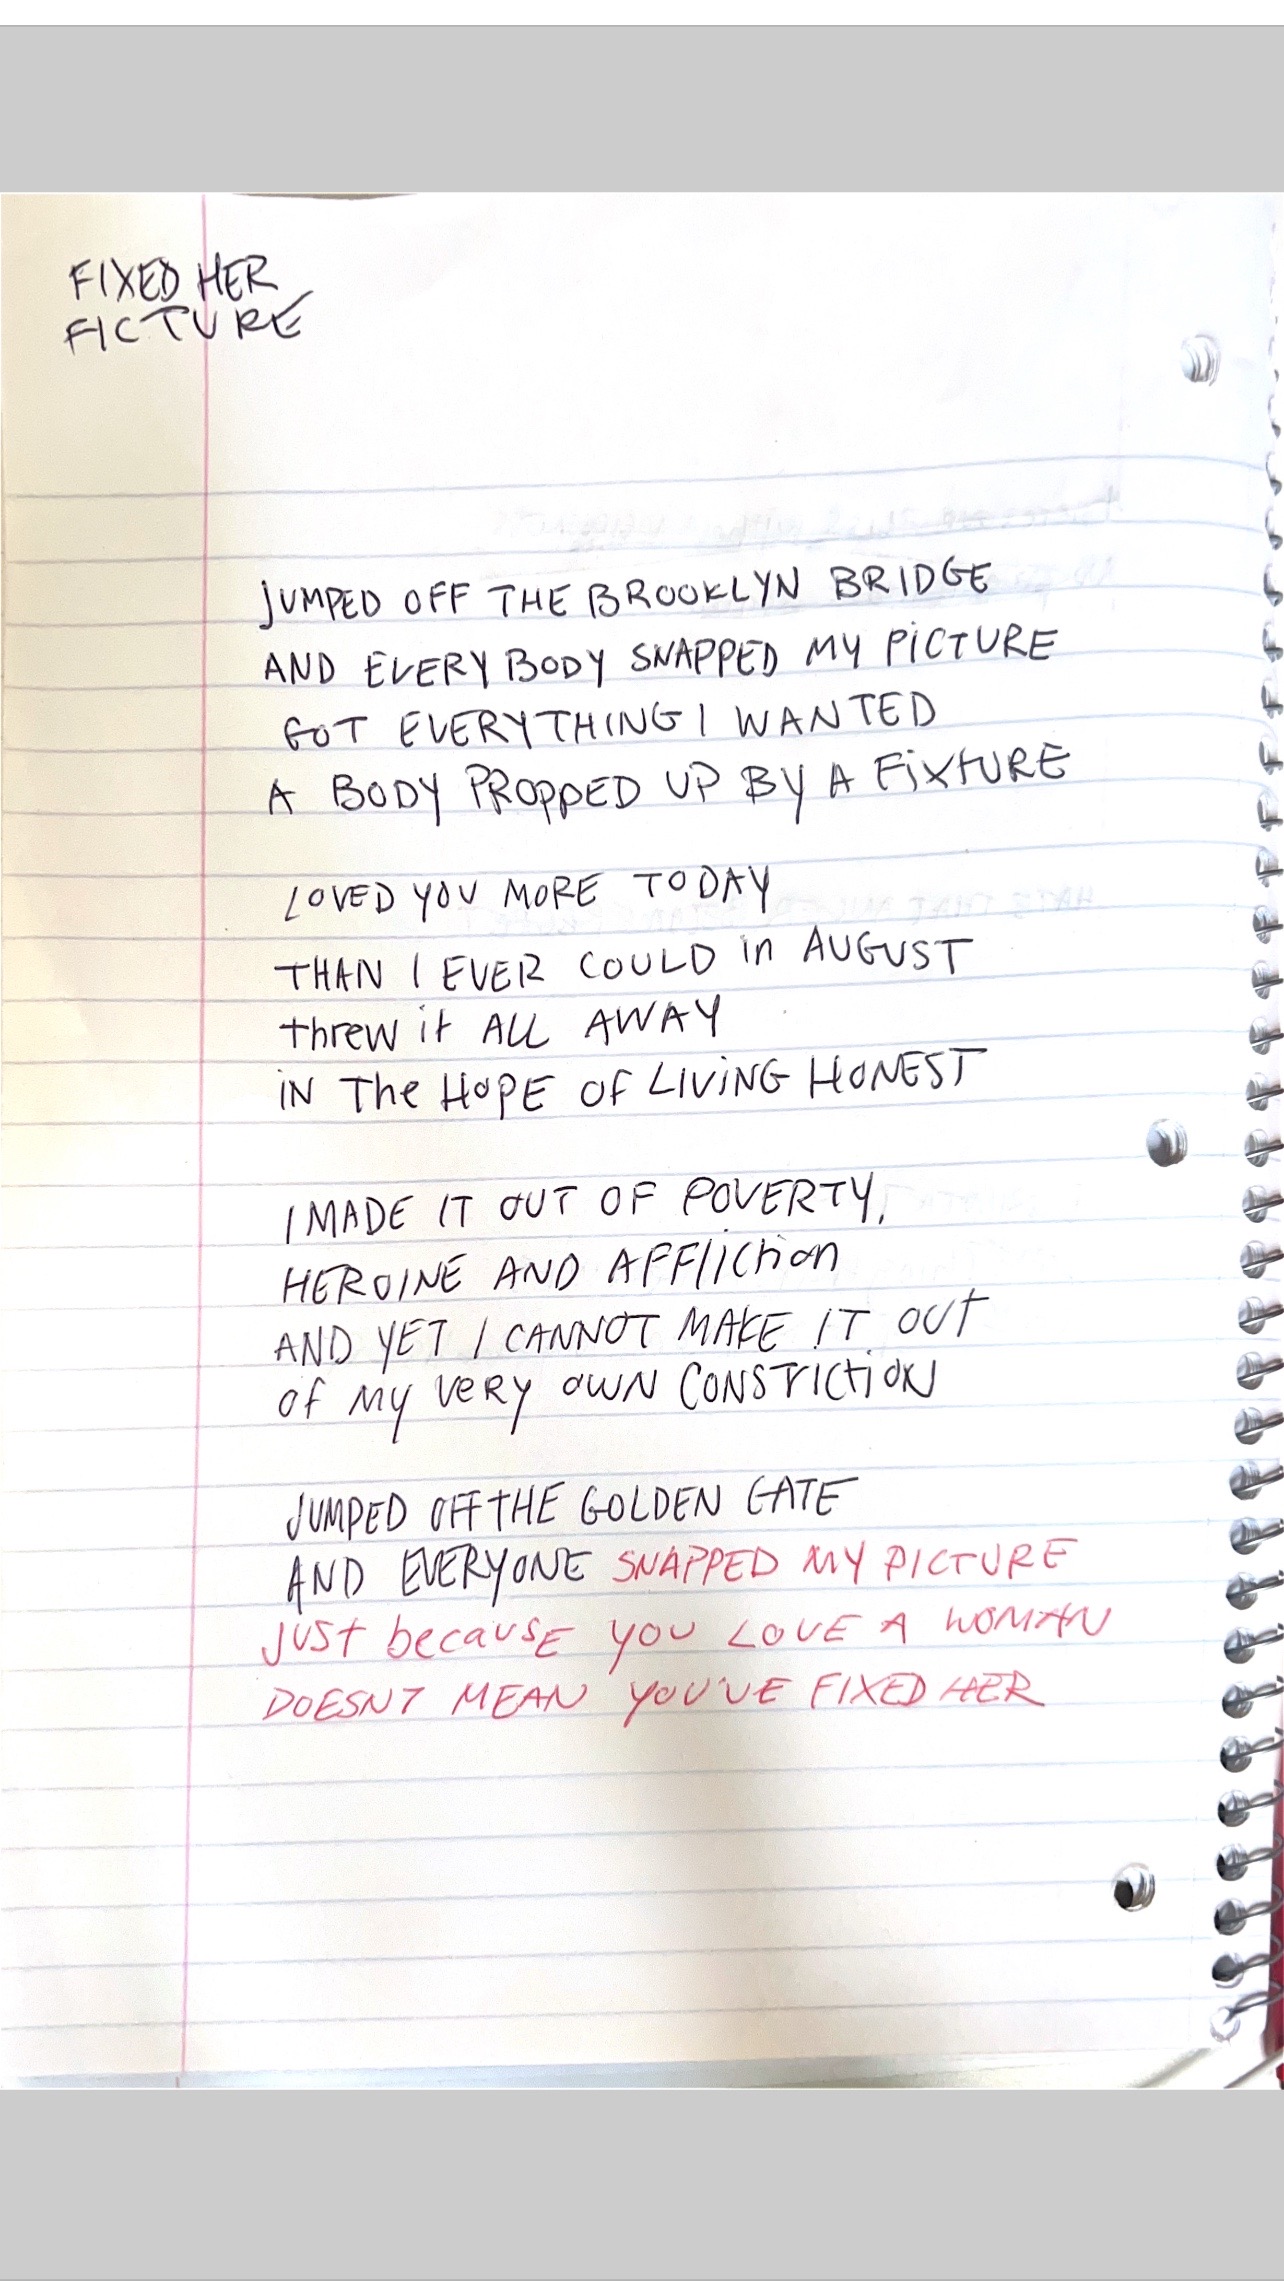 FIXED HER
FICTURE
JUMPED OFF THE BROOKLYN BRIDGE
AND EVERYBODY SNAPPED MY PICTURE
GOT EVERYTHING I WANTED
A BODY PROPPED UP BY A FIXTURE
LOVED YOU MORE TODAY
THAN I EVER COULD in AUGUST
threw it ALL AWAY
iN The HOPE OF LIVING HONEST
I MADE IT OUT OF POVERTY,
HEROINE AND AFFliction
AND YET I CANNOT MAKE IT OUT
of MY VERY OWN CONSTRICTION
JUMPED OFF THE GOLDEN GATE
AND EVERYONE SNAPPED MY PICTURE
JUST because YOU LOVE A WOMAN
DOESNT MEAN YOU'VE FIXED HER